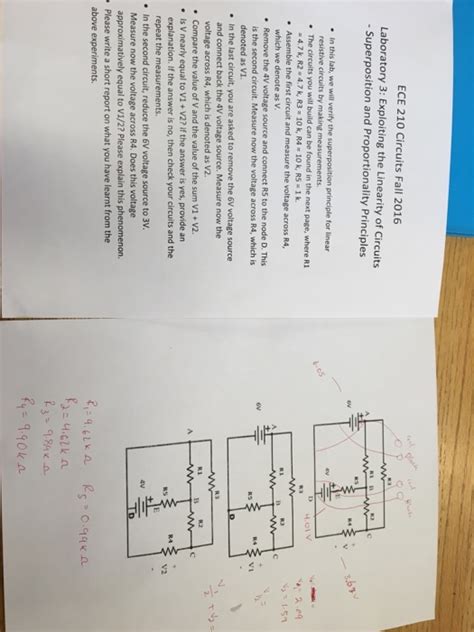 ECE 210 Circuits Fall 2016
Laboratory 3: Exploiting the Linearity of Circuits
- Superposition and Proportionality Principles
• In this lab, we will verify the superposition principle for linear
resistive circuits by making measurements.
• The circuits you will build can be found in the next page, where R1
= 4.7 k, R2 = 4.7 k, R3 = 10 k, R4 = 10 k, R5 = 1 k.
• Assemble the first circuit and measure the voltage across R4,
which we denote as V.
• Remove the 4V voltage source and connect R5 to the node D. This
is the second circuit. Measure now the voltage across R4, which is
denoted as V1.
• In the last circuit, you are asked to remove the 6V voltage source
and connect back the 4V voltage source. Measure now the
voltage across R4, which is denoted as V2.
• Compare the value of V and the value of the sum V1 + V2.
Is V nearly equal to V1 + V2? If the answer is yes, provide an
explanation. If the answer is no, then check your circuits and the
repeat the measurements.
• In the second circuit, reduce the 6V voltage source to 3V.
Measure now the voltage across R4. Does this voltage
approximatively equal to V1/2? Please explain this phenomenon.
• Please write a short report on what you have learnt from the
above experiments.
6.05
R3
A R1 B R2 C
6V
R5
E
4V
R4
V
D
4.01V
3.68V
R3
A R1 B R2 C
6V
R5
R4
V1
D
V2 = 2.09
V1 = 1.59
R3
A R1 B R2 C
R5
E
4V
R4
V2
D
R1 = 4.62kΩ R5 = 0.99kΩ
R2 = 4.62kΩ
R3 = 9.84kΩ
R4 = 9.90kΩ